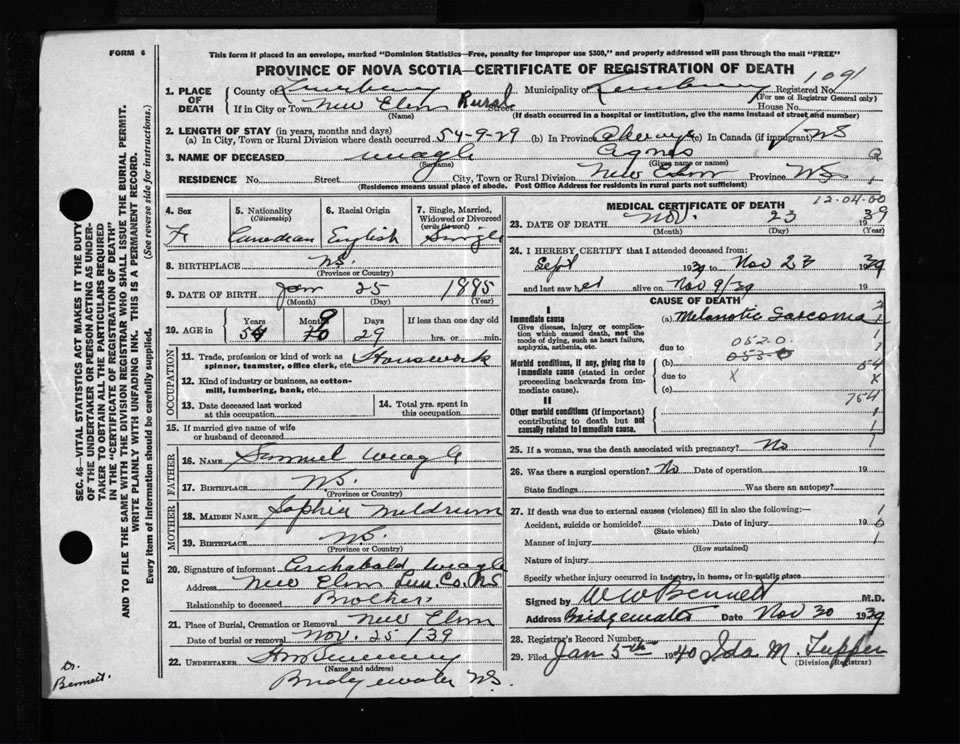 FORM 6
This form if placed in an envelope, marked "Dominion Statistics—Free, penalty for improper use $300," and properly addressed will pass through the mail "FREE"
PROVINCE OF NOVA SCOTIA—CERTIFICATE OF REGISTRATION OF DEATH
1091
1. PLACE OF DEATH County of Lunenburg Municipality of Lunenburg Registered No.
(For use of Registrar General only)
If in City or Town New Elm Rural Street House No.
(Name) (If death occurred in a hospital or institution, give the name instead of street and number)
2. LENGTH OF STAY (in years, months and days)
(a) In City, Town or Rural Division where death occurred 54-9-29 (b) In Province always (c) In Canada (if immigrant) NS
3. NAME OF DECEASED Weagle Agnes
(Surname) (Given name or names)
RESIDENCE No. Street City, Town or Rural Division New Elm Province NS
(Residence means usual place of abode. Post Office Address for residents in rural parts not sufficient)
4. Sex 5. Nationality (Citizenship) 6. Racial Origin 7. Single, Married, Widowed or Divorced (write the word)
F Canadian English Single
8. BIRTHPLACE NS.
(Province or Country)
9. DATE OF BIRTH Jan 25 1885
(Month) (Day) (Year)
10. AGE in Years Months Days If less than one day old
54 9 10 29 hrs. or min.
OCCUPATION
11. Trade, profession or kind of work as spinner, teamster, office clerk, etc. Housework
12. Kind of industry or business, as cotton-mill, lumbering, bank, etc.
13. Date deceased last worked at this occupation
14. Total yrs. spent in this occupation
15. If married give name of wife or husband of deceased
FATHER
16. NAME Samuel Weagle
17. BIRTHPLACE NS.
(Province or Country)
MOTHER
18. MAIDEN NAME Sophia Meldrum
19. BIRTHPLACE NS.
(Province or Country)
20. Signature of informant Archabald Weagle
Address New Elm Lun. Co. NS
Relationship to deceased Brother
21. Place of Burial, Cremation or Removal New Elm
Date of burial or removal Nov. 25/39
22. UNDERTAKER
(Name and address)
Bridgewater NS.
MEDICAL CERTIFICATE OF DEATH
12-04-00
23. DATE OF DEATH Nov. 23 1939
(Month) (Day) (Year)
24. I HEREBY CERTIFY that I attended deceased from:
Sept 1939 to Nov 23 1939
and last saw her alive on Nov 9/39 19
CAUSE OF DEATH
I
Immediate cause
Give disease, injury or complication which caused death, not the mode of dying, such as heart failure, asphyxia, asthenia, etc.
(a) Melanotic Sarcoma
due to 0520
Morbid conditions, if any, giving rise to immediate cause (stated in order proceeding backwards from immediate cause).
(b) 053-6
54
due to X X
(c) 754
II
Other morbid conditions (if important) contributing to death but not causally related to immediate cause.
25. If a woman, was the death associated with pregnancy? No
26. Was there a surgical operation? No Date of operation 19
State findings Was there an autopsy?
27. If death was due to external causes (violence) fill in also the following:—
Accident, suicide or homicide? Date of injury 19
(State which)
Manner of injury
(How sustained)
Nature of injury
Specify whether injury occurred in industry, in home, or in public place
Signed by W W Bennett M.D.
Address Bridgewater Date Nov 30 1939
28. Registrar's Record Number
29. Filed Jan 5th 1940 Ida M. Tupper
(Division Registrar)
SEC. 46—VITAL STATISTICS ACT MAKES IT THE DUTY OF THE UNDERTAKER OR PERSON ACTING AS UNDERTAKER TO OBTAIN ALL THE PARTICULARS REQUIRED IN THE "CERTIFICATE OF REGISTRATION OF DEATH" AND TO FILE THE SAME WITH THE DIVISION REGISTRAR WHO SHALL ISSUE THE BURIAL PERMIT.
WRITE PLAINLY WITH UNFADING INK. THIS IS A PERMANENT RECORD.
Every item of information should be carefully supplied. (See reverse side for instructions.)
Dr.
Bennett.